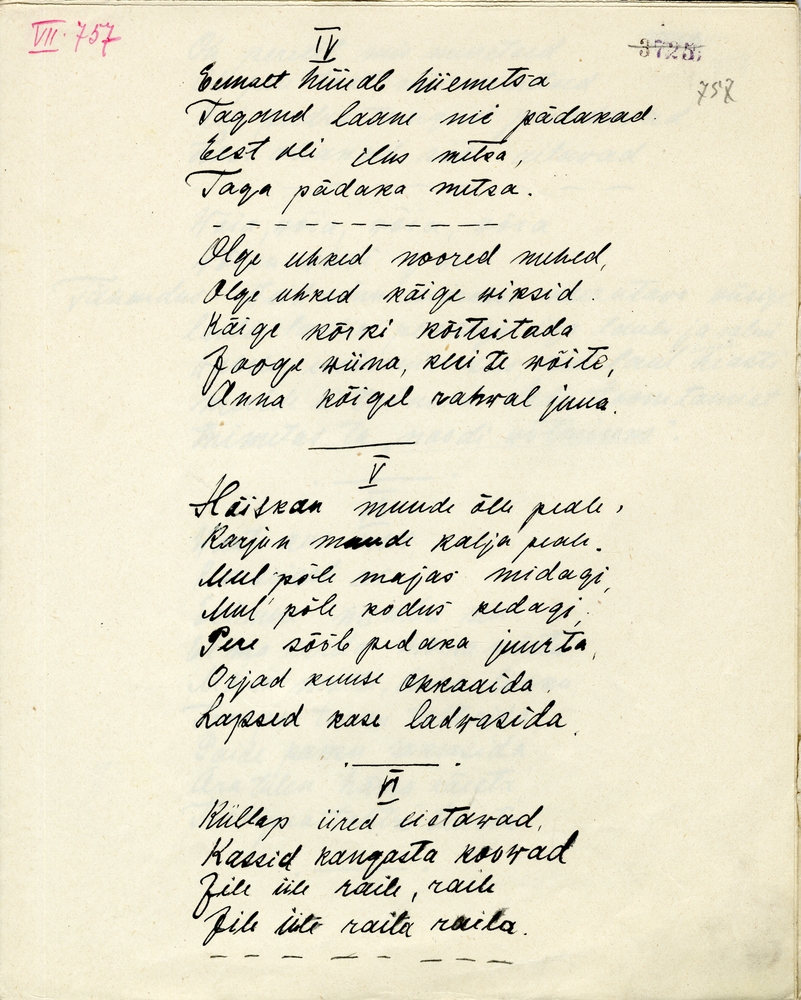 VII. 757
3725.
757
IV
Eemalt hüüab hiiemetsa
Tagand laane nii pädakad.
Eest oli ilus metsa,
Taga pädaka metsa.
Olge uhked noored mehed,
Olge uhked käige wiksid.
Käige kõrki kõrtsitada
Jooge wiina, keeite wõite,
Anna kõigel rahwal juua.
V
Hõiskan muude õlle peale,
Karjun muude kalja peale.
Mul põle majas midagi,
Mul põle kodus kedagi.
Pere sööb pedaka juurta,
Orjad kuuse okkaaida.
Lapsed kase ladwasida.
VI
Küllap iired eietawad,
Kassid kangasta koowad
File üle raile, raile
File üle raila raila.